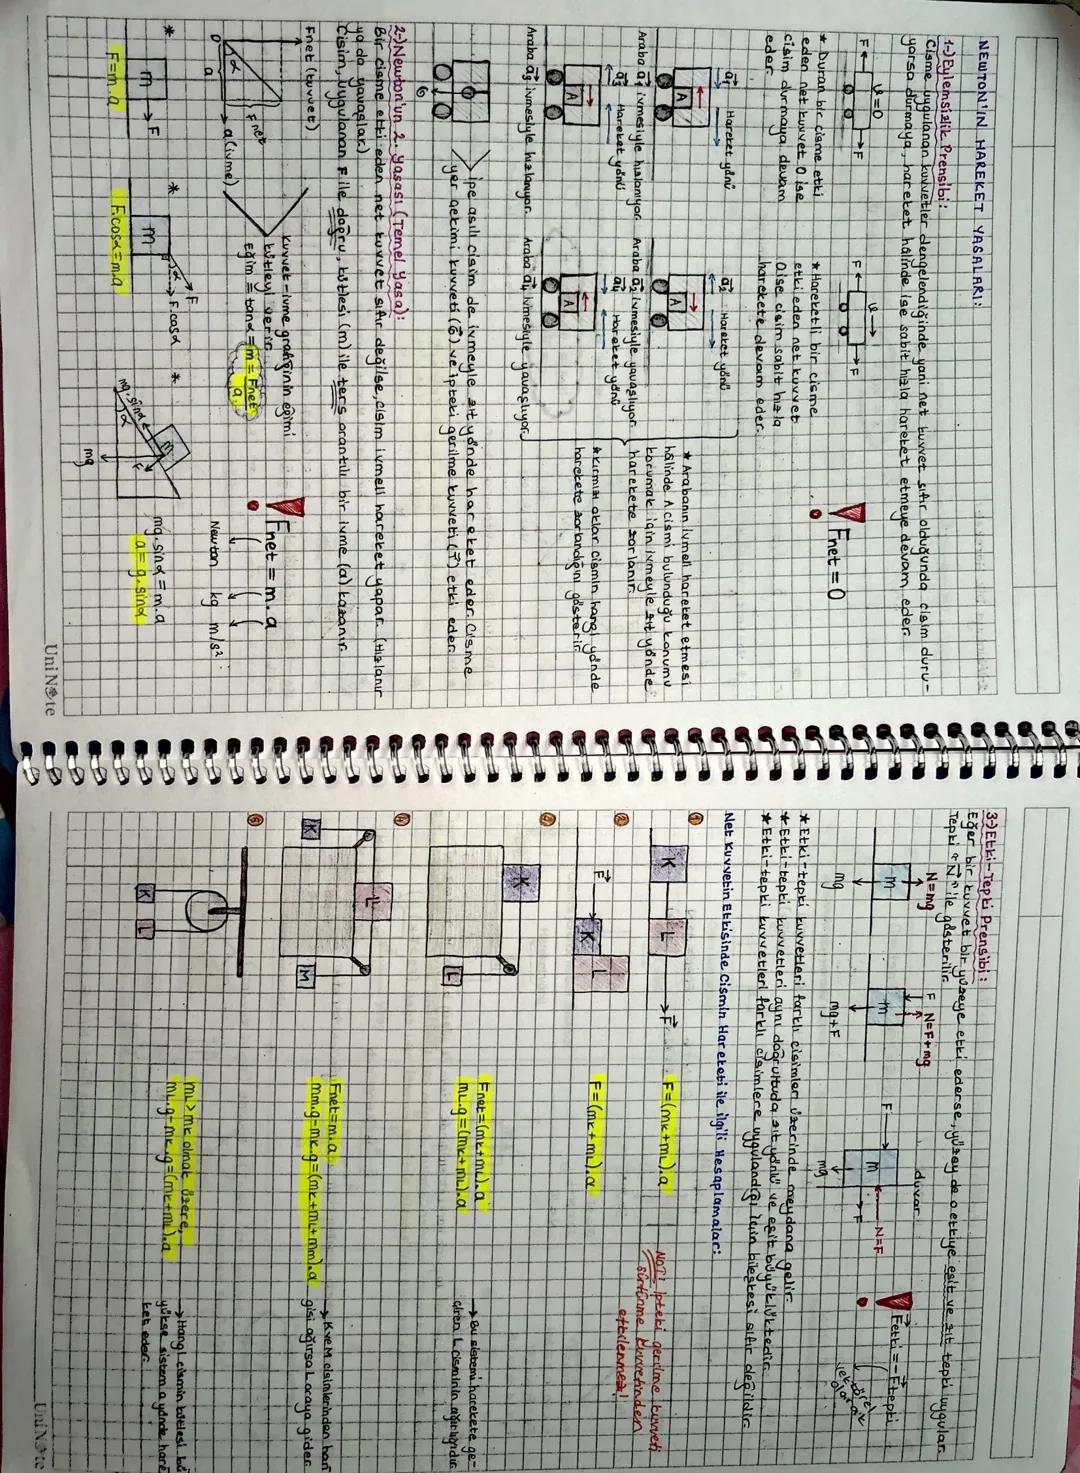 NEWTON'IN HAREKET YASALARI:
1-) Eylemsizlik Prensibi:
Cisme uygulanan kuvvetler dengelendiğinde yani net kuvvet sıfır olduğunda cisim duru-
yorsa durmaya, hareket hâlinde ise sabit hızla hareket etmeye devam eder.
F v=0 F
F v F
Fnet = 0
* Duran bir cisme etki
eden net kuvvet 0 ise
cisim durmaya devam
eder.
* Hareketli bir cisme
etki eden net kuvvet
0 ise cisim sabit hızla
harekete devam eder.
a₁ Hareket yönü
A
Araba a₁ ivmesiyle hızlanıyor.
a₂ Hareket yönü
A
Araba a₂ ivmesiyle yavaşlıyor.
a₃ Hareket yönü
A
Araba a₃ ivmesiyle hızlanıyor.
a₄ Hareket yönü
A
Araba a₄ ivmesiyle yavaşlıyor.
* Arabanın ivmeli hareket etmesi
hâlinde A cismi bulunduğu konumu
korumak için ivmeyle zıt yönde
harekete zorlanır.
* Kırmızı oklar cismin hangi yönde
harekete zorlandığını gösterir.
G
İpe asılı cisim de ivmeyle zıt yönde hareket eder. Cisme
yer çekimi kuvveti (G) ve ipteki gerilme kuvveti (T) etki eder.
2-) Newton'un 2. Yasası (Temel Yasa):
Bir cisme etki eden net kuvvet sıfır değilse, cisim ivmeli hareket yapar. (Hızlanır
ya da yavaşlar.)
Cisim, uygulanan F ile doğru, kütlesi (m) ile ters orantılı bir ivme (a) kazanır.
Fnet (kuvvet)
Fnet
α
a (ivme)
0 a
Kuvvet-ivme grafiğinin eğimi
kütleyi verir.
Eğim = tanα = m = Fnet
a
Fnet = m.a
Newton kg m/s²
* m F
F=m.a
* m α F F.cosα
F.cosα=m.a
* mg.sinα m F α mg
mg.sinα = m.a
a = g.sinα
UniNote
3-) Etki-Tepki Prensibi:
Eğer bir kuvvet bir yüzeye etki ederse, yüzey de o etkiye eşit ve zıt tepki uygular.
Tepki "N" ile gösterilir.
N=mg
m
mg
F N=F+mg
m
mg+F
duvar
F m N=F
F
mg
Fetki = -Ftepki
vektörel
olarak
* Etki-tepki kuvvetleri farklı cisimler üzerinde meydana gelir.
* Etki-tepki kuvvetleri aynı doğrultuda zıt yönlü ve eşit büyüklüktedir.
* Etki-tepki kuvvetleri farklı cisimlere uygulandığı için bileşkesi sıfır değildir.
Net Kuvvetin Etkisinde Cismin Hareketi ile ilgili Hesaplamalar:
① K L F
F=(mK+mL).a
NOT! İpteki gerilme kuvveti
sürtünme kuvvetinden
etkilenmez!
② F K L
F=(mK+mL).a
③ K L
Fnet=(mK+mL).a
mL.g=(mK+mL).a
→ Bu sistemi harekete ge-
çiren L cisminin ağırlığıdır.
④ K L M
Fnet=m.a
mM.g-mK.g=(mK+mL+mM).a
→ K ve M cisimlerinden han-
gisi ağırsa L oraya gider.
⑤ K L
mL>mK olmak üzere,
mL.g-mK.g=(mK+mL).a
→ Hangi cismin kütlesi bü
yükse sistem o yönde hare
ket eder.
UniNote